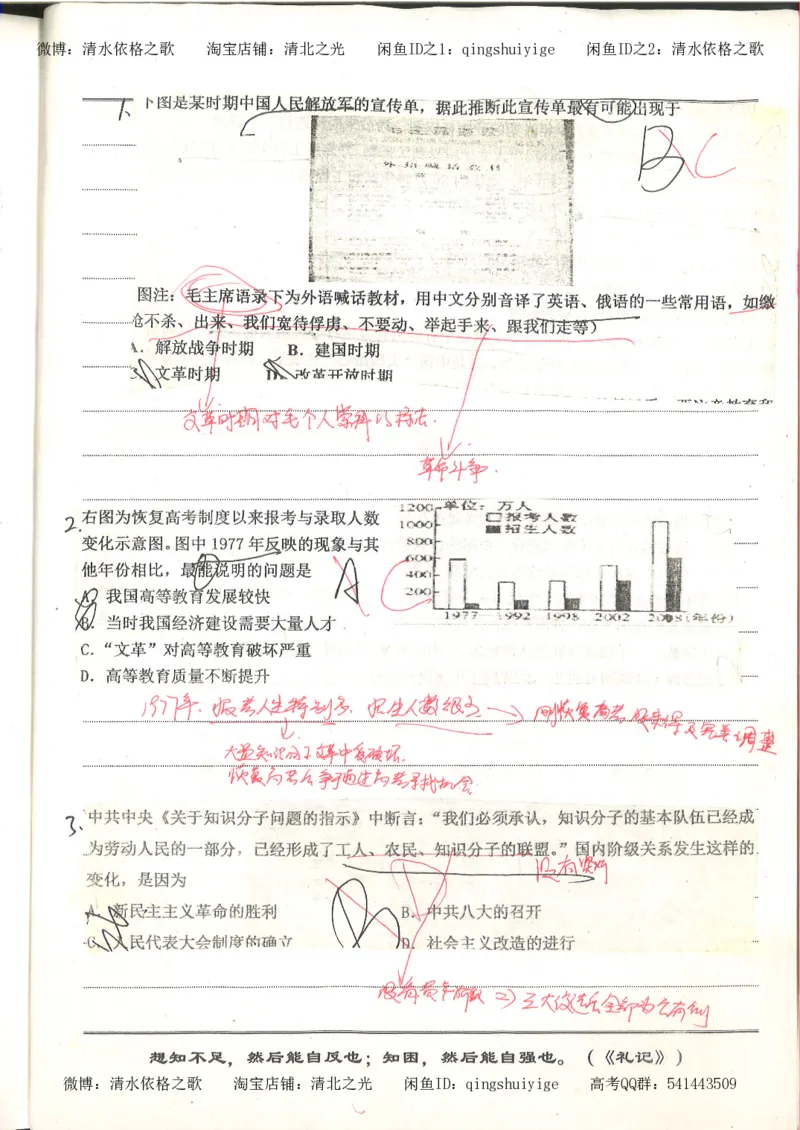 微博：清水依格之歌 淘宝店铺：清北之光 闲鱼ID之1：qingshuiyige 闲鱼ID之2：清水依格之歌
1、下图是某时期中国人民解放军的宣传单，据此推断此宣传单最有可能出现于
外语喊话教材
B C
图注：毛主席语录下为外语喊话教材，用中文分别音译了英语、俄语的一些常用语，如缴
枪不杀、出来、我们宽待俘虏、不要动、举起手来、跟我们走等）
A．解放战争时期 B．建国时期
C．文革时期 D．改革开放时期
文革时期对毛个人崇拜
革命斗争．
2.右图为恢复高考制度以来报考与录取人数
变化示意图。图中1977年反映的现象与其
他年份相比，最能说明的问题是
A．我国高等教育发展较快
B．当时我国经济建设需要大量人才
C．“文革”对高等教育破坏严重
D．高等教育质量不断提升
A C
单位：万人
报考人数
招生人数
1200
1000
800
600
400
200
1977 1992 1998 2002 2008(年份)
1977年，报考人生特别多．招生人数很少 刚恢复高考 调整
大量知识分子文革中被破坏．
恢复高考后
3.中共中央《关于知识分子问题的指示》中断言：“我们必须承认，知识分子的基本队伍已经成
为劳动人民的一部分，已经形成了工人、农民、知识分子的联盟。”国内阶级关系发生这样的
没有资
变化，是因为
A．新民主主义革命的胜利 B．中共八大的召开
C．人民代表大会制度的确立 D．社会主义改造的进行
B D
三大改造后全部为公有制
想知不足，然后能自反也；知困，然后能自强也。（《礼记》）
微博：清水依格之歌 淘宝店铺：清北之光 闲鱼ID：qingshuiyige 高考QQ群：541443509